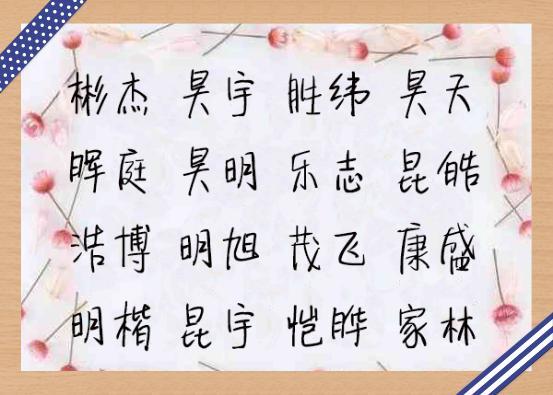 彬杰 昊宇 胜纬 昊天
晖庭 昊明 乐志 昆皓
浩博 明旭 茂飞 康盛
明楷 昆宇 恺晔 家林